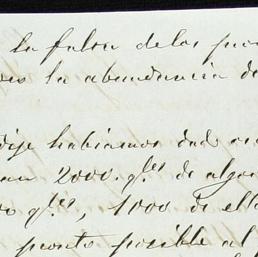 la falta de los
la abundancia de
dije habiamos dado
2000. q.les de algo
q.les, 1000 de ell
pronto posible al